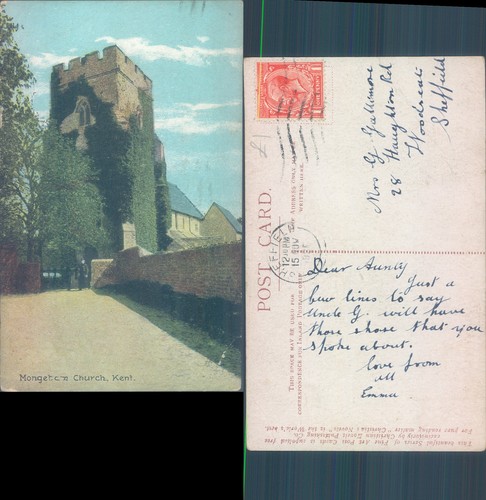 Mongeham Church, Kent.
POST CARD.
THIS SPACE MAY BE USED FOR
CORRESPONDENCE FOR INLAND POSTAGE ONLY
THE ADDRESS ONLY TO BE
WRITTEN HERE.
ONE PENNY
£1
SHEFFIELD
12 15 PM
15 NOV
Mrs G Gallimore
28 Haughton Rd
Woodseats
Sheffield
Dear Aunty
Just a
few lines to say
Uncle G. will have
those shose that you
spoke about.
love from
all
Emma
This beautiful Series of Fine Art Post Cards is supplied free
exclusively by Christian Novels Publishing Co.
For pure reading matter "Christian Novels" is the World's best.